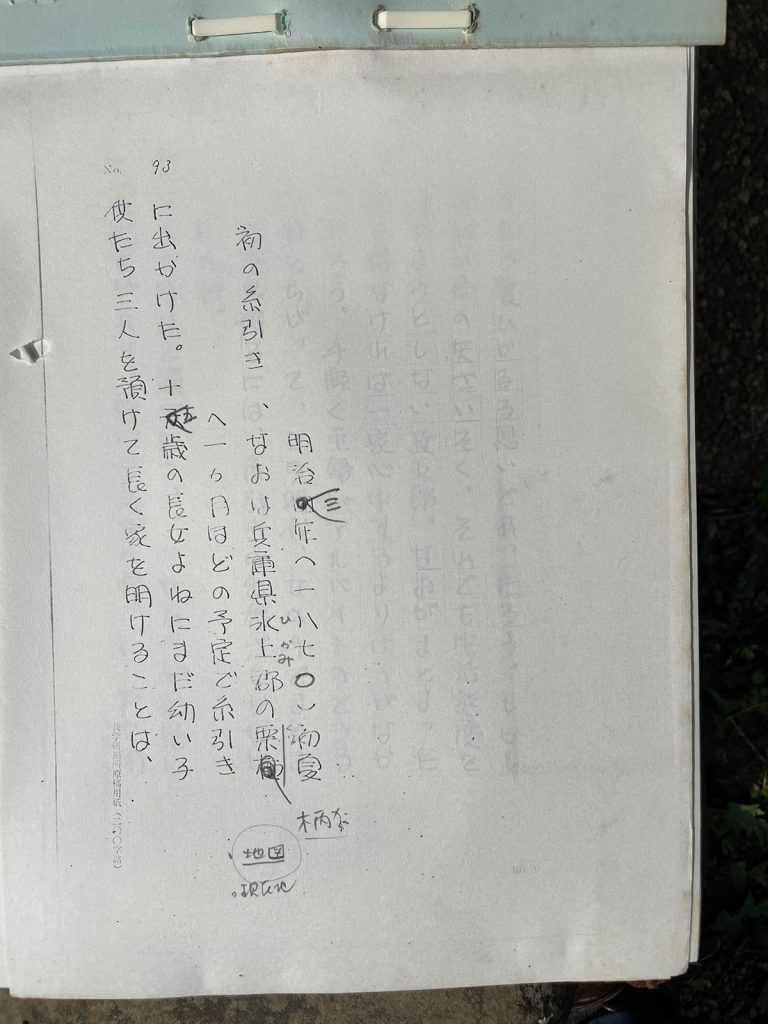 明治三年(一八七〇)初夏
初の糸引き、なおは兵庫県氷上郡の栗柄
ひかみ
へ一か月ほどの予定で糸引き
に出かけた。十歳の長女よねにまだ幼い子
供たち三人を預けて長く家を明けることは、
地図
No. 93
教学研鑽所原稿用紙(二〇〇字詰)